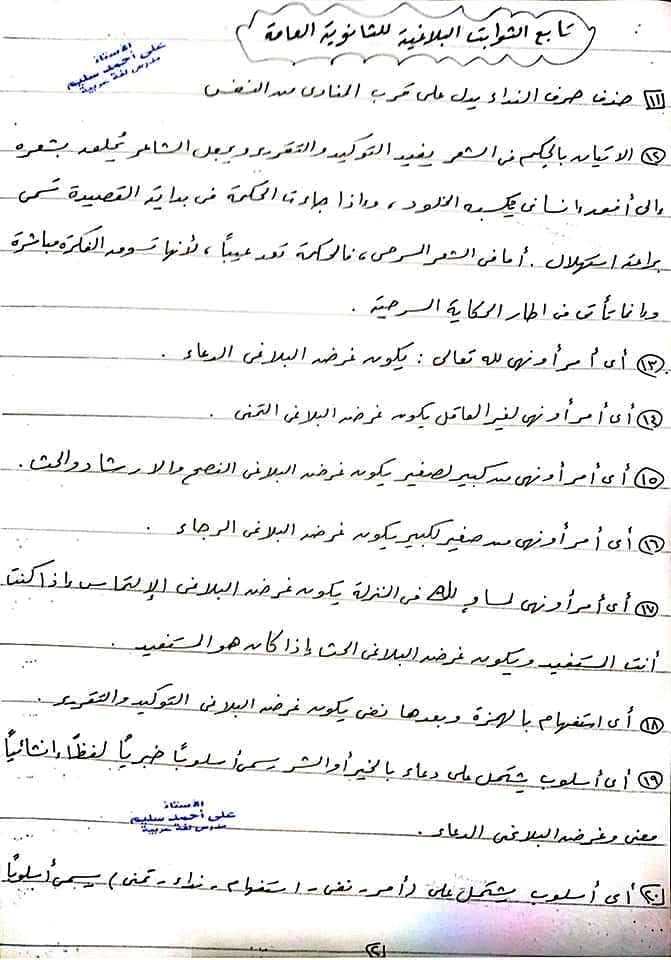 تابع الثوابت البلاغية للثانوية العامة
الأستاذ
على أحمد سليم
مدرس لغة عربية
١١ حذف حرف النداء يدل على قرب المنادى من النفس
١٢ الاتيان بالحكم فى الشعر يفيد التوكيد والتقرير ويجعل الشاعر يُحلق بشعره
إلى أفق إنسانى يكسبه الخلود، وإذا جاءت الحكمة فى بداية القصيدة تسمى
براعة استهلال. أما فى الشعر المسرحى، فالحكمة تعد عيباً، لأنها تسوق الفكرة مباشرة
وإنما تأتى فى اطار الحكاية المسرحية.
١٣ أى أمر أو نهى لله تعالى: يكون غرضه البلاغى الدعاء.
١٤ أى أمر أو نهى لغير العاقل يكون غرضه البلاغى التمنى.
١٥ أى أمر أو نهى من كبير لصغير يكون غرضه البلاغى النصح والارشاد والحث.
١٦ أى أمر أو نهى من صغير لكبير يكون غرضه البلاغى الرجاء.
١٧ أى أمر أو نهى لمساوٍ لك فى المنزلة يكون غرضه البلاغى الإلتماس إذا كنت
أنت المستفيد ويكون غرضه البلاغى الحث إذا كان هو المستفيد.
١٨ أى استفهام بالهمزة وبعدها نفى يكون غرضه البلاغى التوكيد والتقرير.
١٩ أى أسلوب يشتمل على دعاء بالخير أو الشر يسمى أسلوبًا خبريًا لفظًا إنشائيًا
معنى وغرضه البلاغى الدعاء.
الأستاذ
على أحمد سليم
مدرس لغة عربية
٢٠ أى أسلوب يشتمل على (أمر - نهى - استفهام - نداء - تمنى) يسمى أسلوبًا
٢